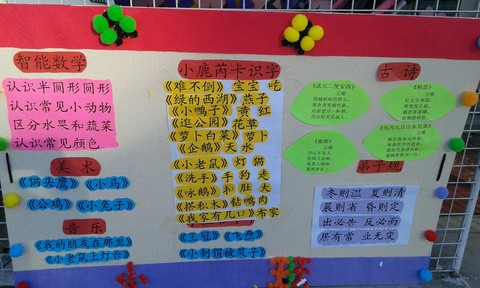 智能数学
认识半圆形圆形
认识常见小动物
区分水果和蔬菜
认识常见颜色
美术
《猫头鹰》 《小马》
《公鸡》 《小兔子》
音乐
《我的朋友在哪里》
《小老鼠上灯台》
小鹿芮卡识字
《难不倒》 宝宝 吃
《绿的西湖》 燕子
《小鸭子》 黄 红
《逛公园》 花 草
《萝卜白菜》 萝卜
《企鹅》 天 水
《小老鼠》 灯 猫
《洗手》 手 狗 走
《咏鹅》 和 肚 大
《搭积木》 钻 鸭 肉
《我家有几口》 布 家
小刺猬拔萝子
古诗
《送元二使安西》
王维
《相思》
王维
《九月九日忆山东兄弟》
王维
弟子规
冬则温 夏则清
晨则省 昏则定
出必告 反必面
居有常 业无变